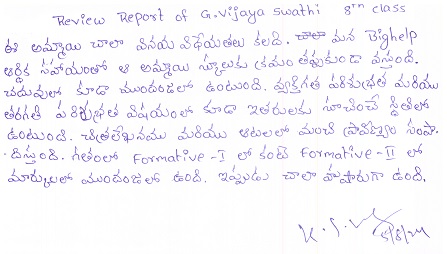 Review Report of G.Vijaya Swathi 8th class
ఈ అమ్మాయి చాలా వినయ విధేయతలు కలది. చాలా మన Bighelp
ఆర్థిక సహాయంతో ఆ అమ్మాయి స్కూలుకు క్రమం తప్పకుండా వస్తుంది.
చదువులో కూడా ముందంజలో ఉంటుంది. వ్యక్తిగత పరిశుభ్రత మరియు
తరగతి పరిశుభ్రత విషయంలో కూడా ఇతరులకు సూచించే స్థితిలో
ఉంటుంది. చిత్రలేఖనము మరియు ఆటలలో మంచి ప్రావీణ్యం సంపా
-దిస్తుంది. గతంలో Formative-I లో కంటే Formative-II లో
మార్కులలో ముందంజలో ఉంది. ఇప్పుడు చాలా హుషారుగా ఉంది.